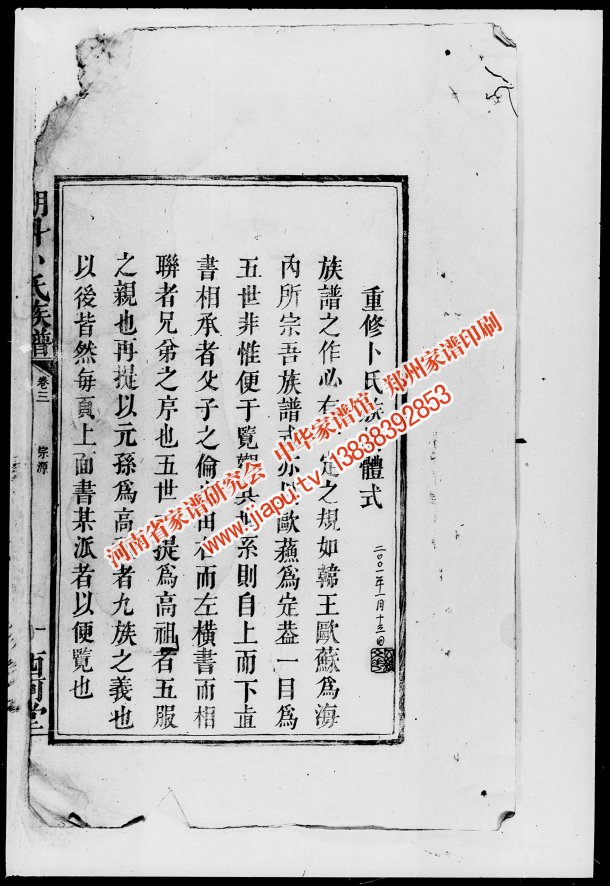 重修卜氏族體式
二〇〇一年一月十三日
族譜之作必有定之規如韓王歐蘇爲海
內所宗吾族譜式亦以歐蘇爲定葢一目爲
五世非惟便于覽世系則自上而下直
書相承者父子之倫也由右而左橫書而相
聯者兄弟之序也五世提爲高祖者五服
之親也再提以元孫爲高者九族之義也
以後皆然每頁上面書某派者以便覽也
氏族譜
卷三
宗源
一
西河堂
河南省家谱研究会 中华家谱馆 郑州家谱印刷
www.jiapu.tv 13838392853